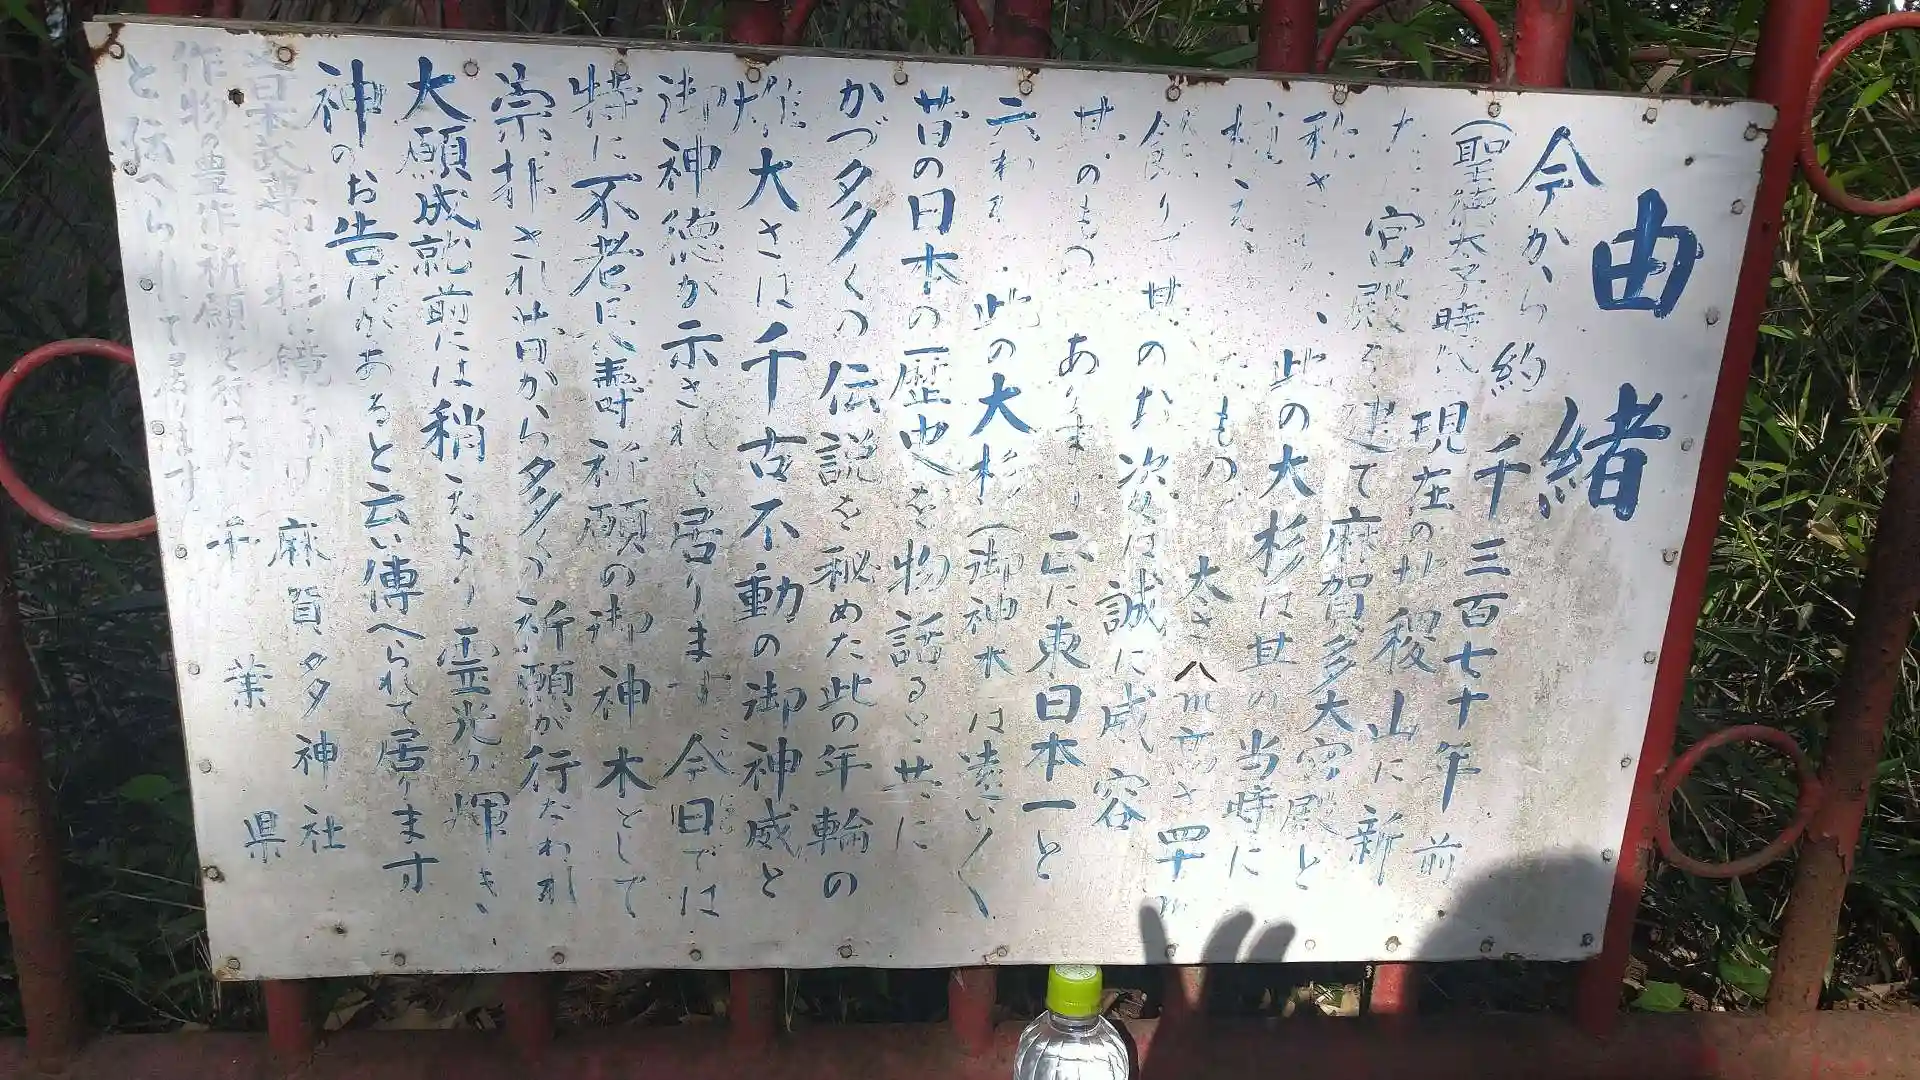 由緒
今から約千三百七十年前
(聖徳太子時代現在の 稷山に新
た 宮殿を建て麻賀多大宮殿と
称さ 、此の大杉は其の当時に
植え たもので 大さ八m高さ四十m
餘りで其のお姿は誠に威容
其のもの ありまり正に東日本一と
云われ 此の大杉(御神木は遠い〱
昔の日本の歴史を物語るい共に
かづ多くの伝説を秘めた此の年輪の
雄大さは千古不動の御神威と
御神徳が示されて居ります が今日では
特に不老長寿祈願の御神木として
崇拝され昔から多くの祈願が行なわれ
大願成就前には稍 えより霊光が輝き
神のお告げがあると云い傳へられて居ります
日本武尊がこの杉に鏡をかけ
作物の豊作祈願を行った
と伝へられて居ります
麻賀多神社
千葉県